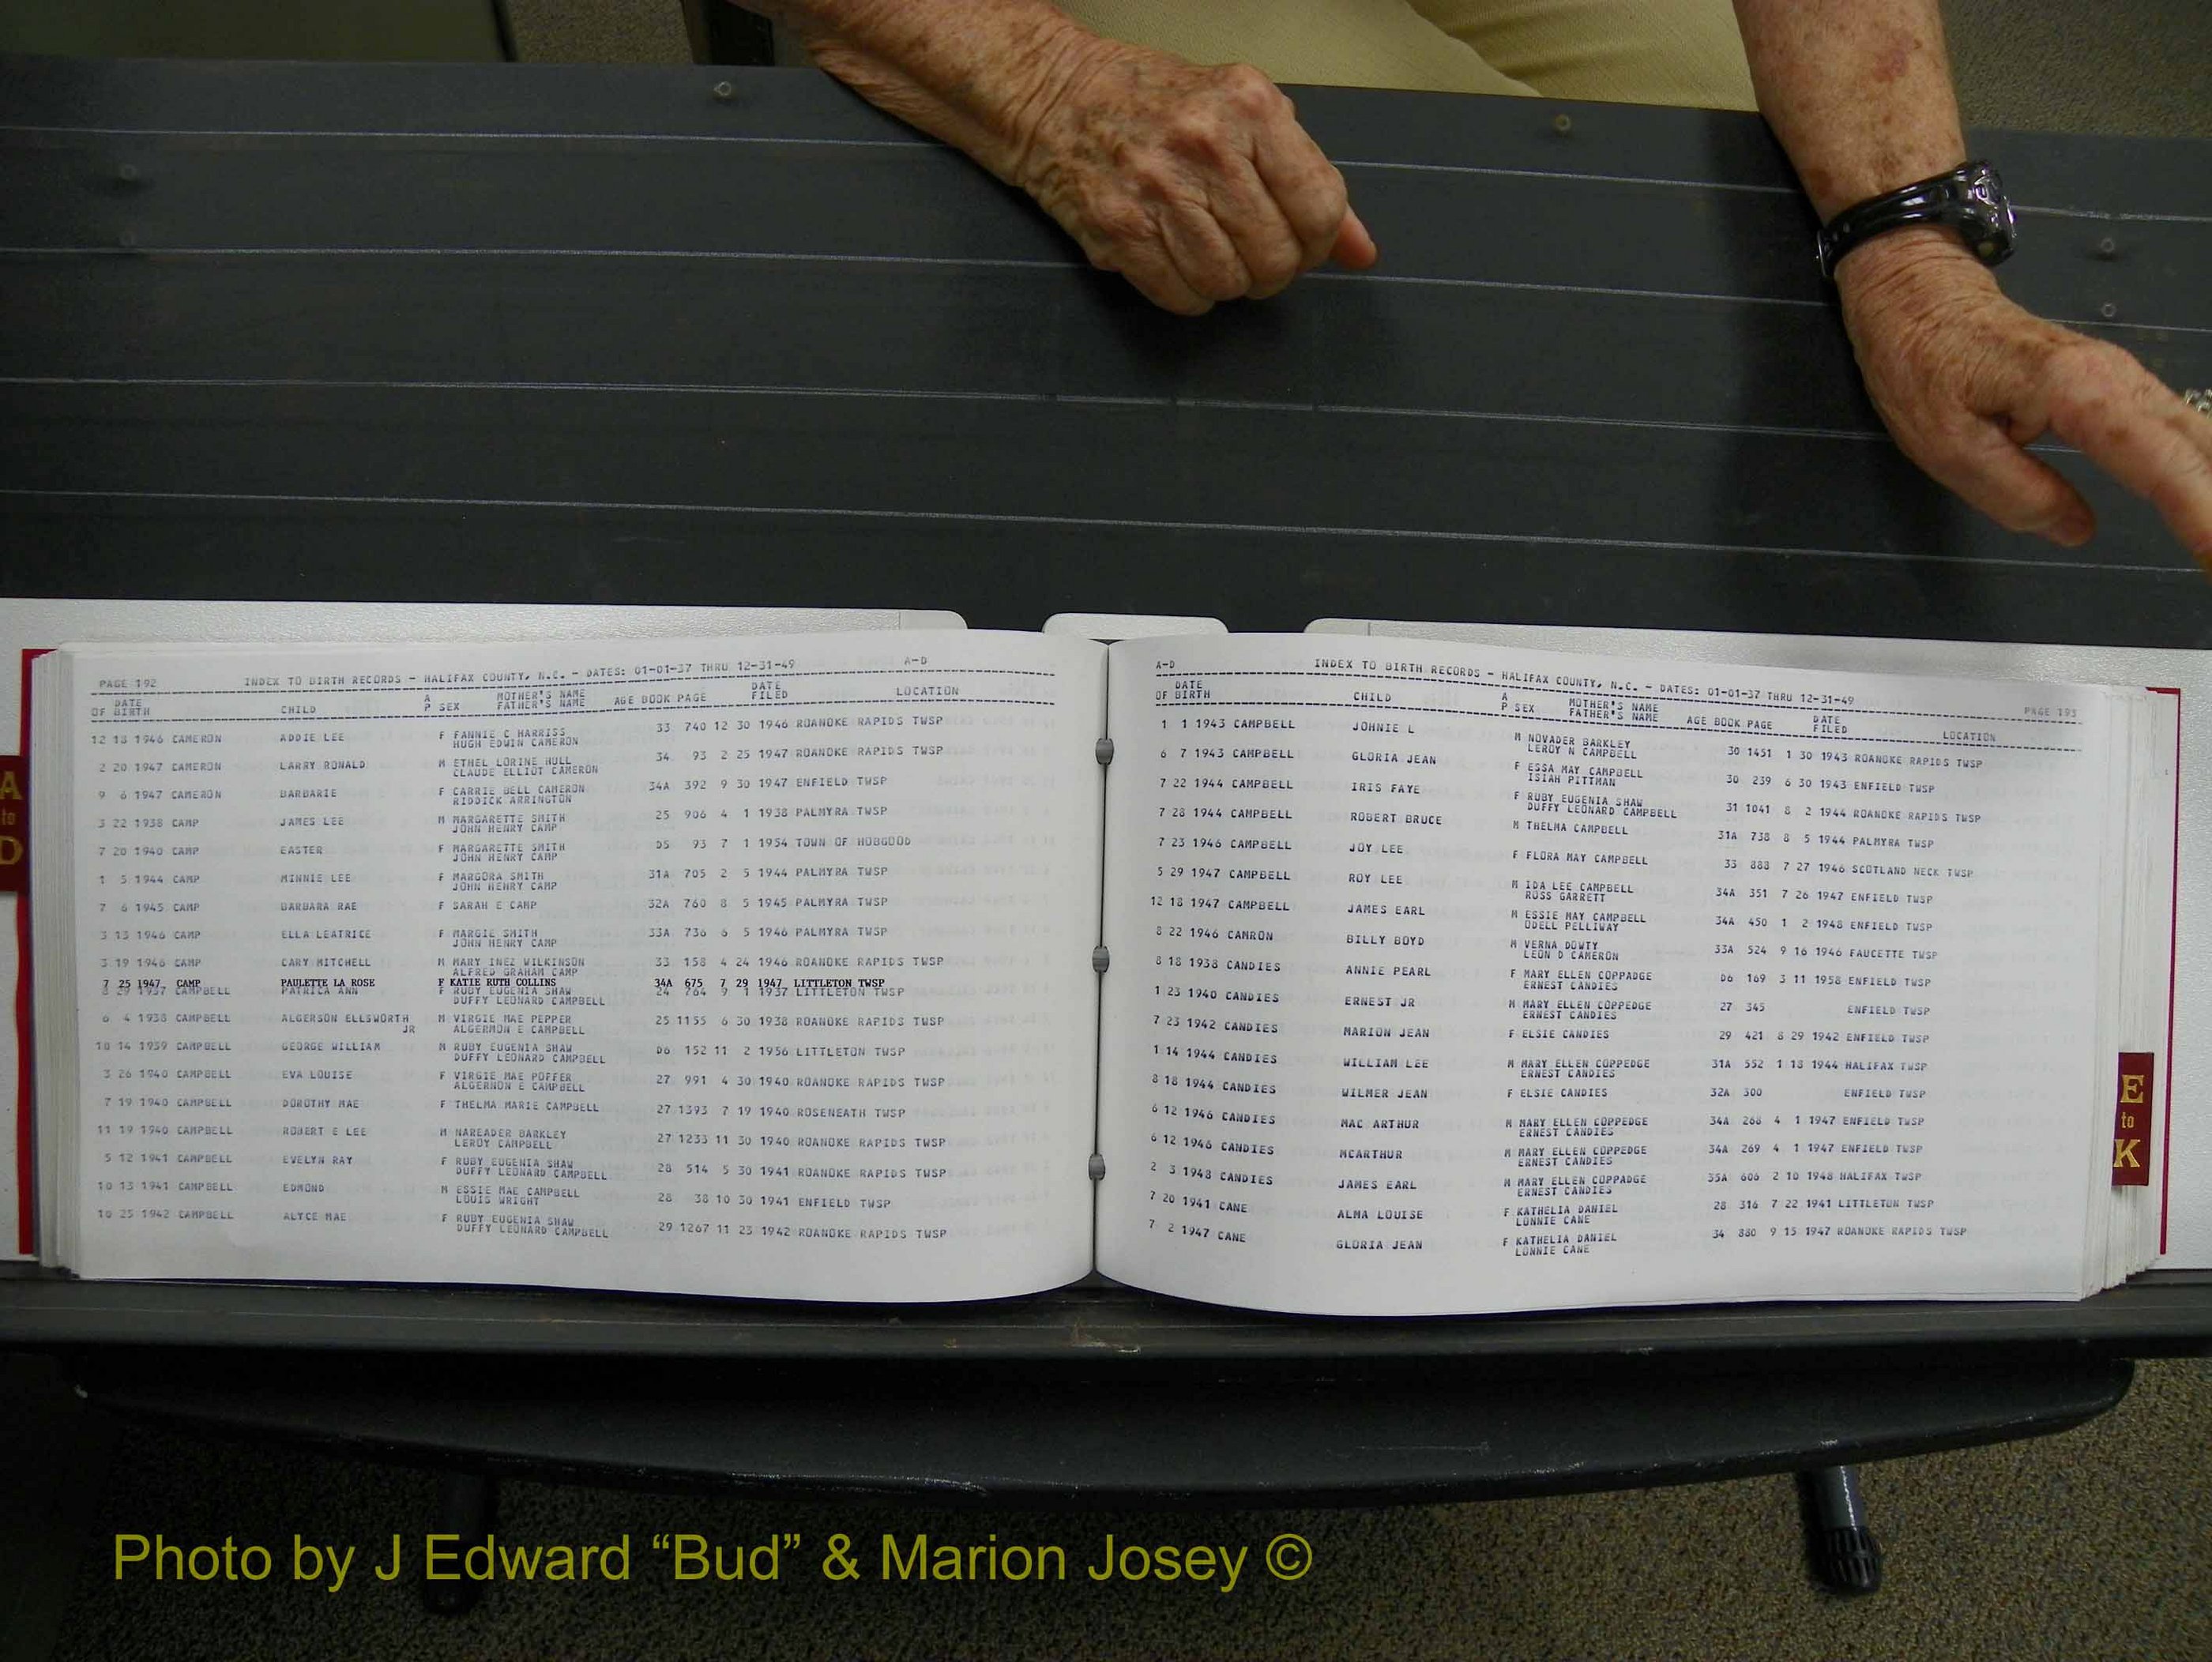 PAGE 192 INDEX TO BIRTH RECORDS - HALIFAX COUNTY, N.C. - DATES: 01-01-37 THRU 12-31-49 A-D
DATE A MOTHER'S NAME DATE
OF BIRTH CHILD P SEX FATHER'S NAME AGE BOOK PAGE FILED LOCATION
12 18 1946 CAMERON ADDIE LEE F FANNIE C HARRISS 33 740 12 30 1946 ROANOKE RAPIDS TWSP
HUGH EDWIN CAMERON
2 20 1947 CAMERON LARRY RONALD M ETHEL LORINE HULL 34 93 2 25 1947 ROANOKE RAPIDS TWSP
CLAUDE ELLIOT CAMERON
9 6 1947 CAMERON BARBARIE F CARRIE BELL CAMERON 34A 392 9 30 1947 ENFIELD TWSP
RIDDICK ARRINGTON
3 22 1938 CAMP JAMES LEE M MARGARETTE SMITH 25 906 4 1 1938 PALMYRA TWSP
JOHN HENRY CAMP
7 20 1940 CAMP EASTER F MARGARETTE SMITH D5 93 7 1 1954 TOWN OF HOBGOOD
JOHN HENRY CAMP
1 5 1944 CAMP MINNIE LEE F MARGORA SMITH 31A 705 2 5 1944 PALMYRA TWSP
JOHN HENRY CAMP
7 6 1945 CAMP BARBARA RAE F SARAH E CAMP 32A 760 8 5 1945 PALMYRA TWSP
3 13 1946 CAMP ELLA LEATRICE F MARGIE SMITH 33A 736 6 5 1946 PALMYRA TWSP
JOHN HENRY CAMP
3 19 1946 CAMP CARY MITCHELL M MARY INEZ WILKINSON 33 158 4 24 1946 ROANOKE RAPIDS TWSP
ALFRED GRAHAM CAMP
7 25 1947 CAMP PAULETTE LA ROSE F KATIE RUTH COLLINS 34A 675 7 29 1947 LITTLETON TWSP
8 29 1937 CAMPBELL PATRICA ANN F RUBY EUGENIA SHAW 24 764 9 1 1937 LITTLETON TWSP
DUFFY LEONARD CAMPBELL
6 4 1938 CAMPBELL ALGERSON ELLSWORTH M VIRGIE MAE PEPPER 25 1155 6 30 1938 ROANOKE RAPIDS TWSP
JR ALGERMON E CAMPBELL
10 14 1939 CAMPBELL GEORGE WILLIAM M RUBY EUGENIA SHAW D6 152 11 2 1956 LITTLETON TWSP
DUFFY LEONARD CAMPBELL
3 26 1940 CAMPBELL EVA LOUISE F VIRGIE MAE POFFER 27 991 4 30 1940 ROANOKE RAPIDS TWSP
ALGERNON E CAMPBELL
7 19 1940 CAMPBELL DOROTHY MAE F THELMA MARIE CAMPBELL 27 1393 7 19 1940 ROSENEATH TWSP
11 19 1940 CAMPBELL ROBERT E LEE M NAREADER BARKLEY 27 1233 11 30 1940 ROANOKE RAPIDS TWSP
LEROY CAMPBELL
5 12 1941 CAMPBELL EVELYN RAY F RUBY EUGENIA SHAW 28 514 5 30 1941 ROANOKE RAPIDS TWSP
DUFFY LEONARD CAMPBELL
10 13 1941 CAMPBELL EDMOND M ESSIE MAE CAMPBELL 28 38 10 30 1941 ENFIELD TWSP
LOUIS WRIGHT
10 25 1942 CAMPBELL ALYCE MAE F RUBY EUGENIA SHAW 29 1267 11 23 1942 ROANOKE RAPIDS TWSP
DUFFY LEONARD CAMPBELL
A-D INDEX TO BIRTH RECORDS - HALIFAX COUNTY, N.C. - DATES: 01-01-37 THRU 12-31-49 PAGE 193
DATE A MOTHER'S NAME DATE
OF BIRTH CHILD P SEX FATHER'S NAME AGE BOOK PAGE FILED LOCATION
1 1 1943 CAMPBELL JOHNIE L M NOVADER BARKLEY 30 1451 1 30 1943 ROANOKE RAPIDS TWSP
LEROY N CAMPBELL
6 7 1943 CAMPBELL GLORIA JEAN F ESSA MAY CAMPBELL 30 239 6 30 1943 ENFIELD TWSP
ISIAH PITTMAN
7 22 1944 CAMPBELL IRIS FAYE F RUBY EUGENIA SHAW 31 1041 8 2 1944 ROANOKE RAPIDS TWSP
DUFFY LEONARD CAMPBELL
7 28 1944 CAMPBELL ROBERT BRUCE M THELMA CAMPBELL 31A 738 8 5 1944 PALMYRA TWSP
7 23 1946 CAMPBELL JOY LEE F FLORA MAY CAMPBELL 33 888 7 27 1946 SCOTLAND NECK TWSP
5 29 1947 CAMPBELL ROY LEE M IDA LEE CAMPBELL 34A 351 7 26 1947 ENFIELD TWSP
ROSS GARRETT
12 18 1947 CAMPBELL JAMES EARL M ESSIE MAY CAMPBELL 34A 450 1 2 1948 ENFIELD TWSP
ODELL PELLIWAY
8 22 1946 CAMRON BILLY BOYD M VERNA DOWTY 33A 524 9 16 1946 FAUCETTE TWSP
LEON D CAMERON
8 18 1938 CANDIES ANNIE PEARL F MARY ELLEN COPPADGE D6 169 3 11 1958 ENFIELD TWSP
ERNEST CANDIES
1 23 1940 CANDIES ERNEST JR M MARY ELLEN COPPEDGE 27 345 ENFIELD TWSP
ERNEST CANDIES
7 23 1942 CANDIES MARION JEAN F ELSIE CANDIES 29 421 8 29 1942 ENFIELD TWSP
1 14 1944 CANDIES WILLIAM LEE M MARY ELLEN COPPEDGE 31A 552 1 18 1944 HALIFAX TWSP
ERNEST CANDIES
8 18 1944 CANDIES WILMER JEAN F ELSIE CANDIES 32A 300 ENFIELD TWSP
6 12 1946 CANDIES MAC ARTHUR M MARY ELLEN COPPEDGE 34A 268 4 1 1947 ENFIELD TWSP
ERNEST CANDIES
6 12 1946 CANDIES MCARTHUR M MARY ELLEN COPPEDGE 34A 269 4 1 1947 ENFIELD TWSP
ERNEST CANDIES
2 3 1948 CANDIES JAMES EARL M MARY ELLEN COPPADGE 35A 606 2 10 1948 HALIFAX TWSP
ERNEST CANDIES
7 20 1941 CANE ALMA LOUISE F KATHELIA DANIEL 28 316 7 22 1941 LITTLETON TWSP
LONNIE CANE
7 2 1947 CANE GLORIA JEAN F KATHELIA DANIEL 34 880 9 15 1947 ROANOKE RAPIDS TWSP
LONNIE CANE
A
to
D
E
to
K
Photo by J Edward “Bud” & Marion Josey ©